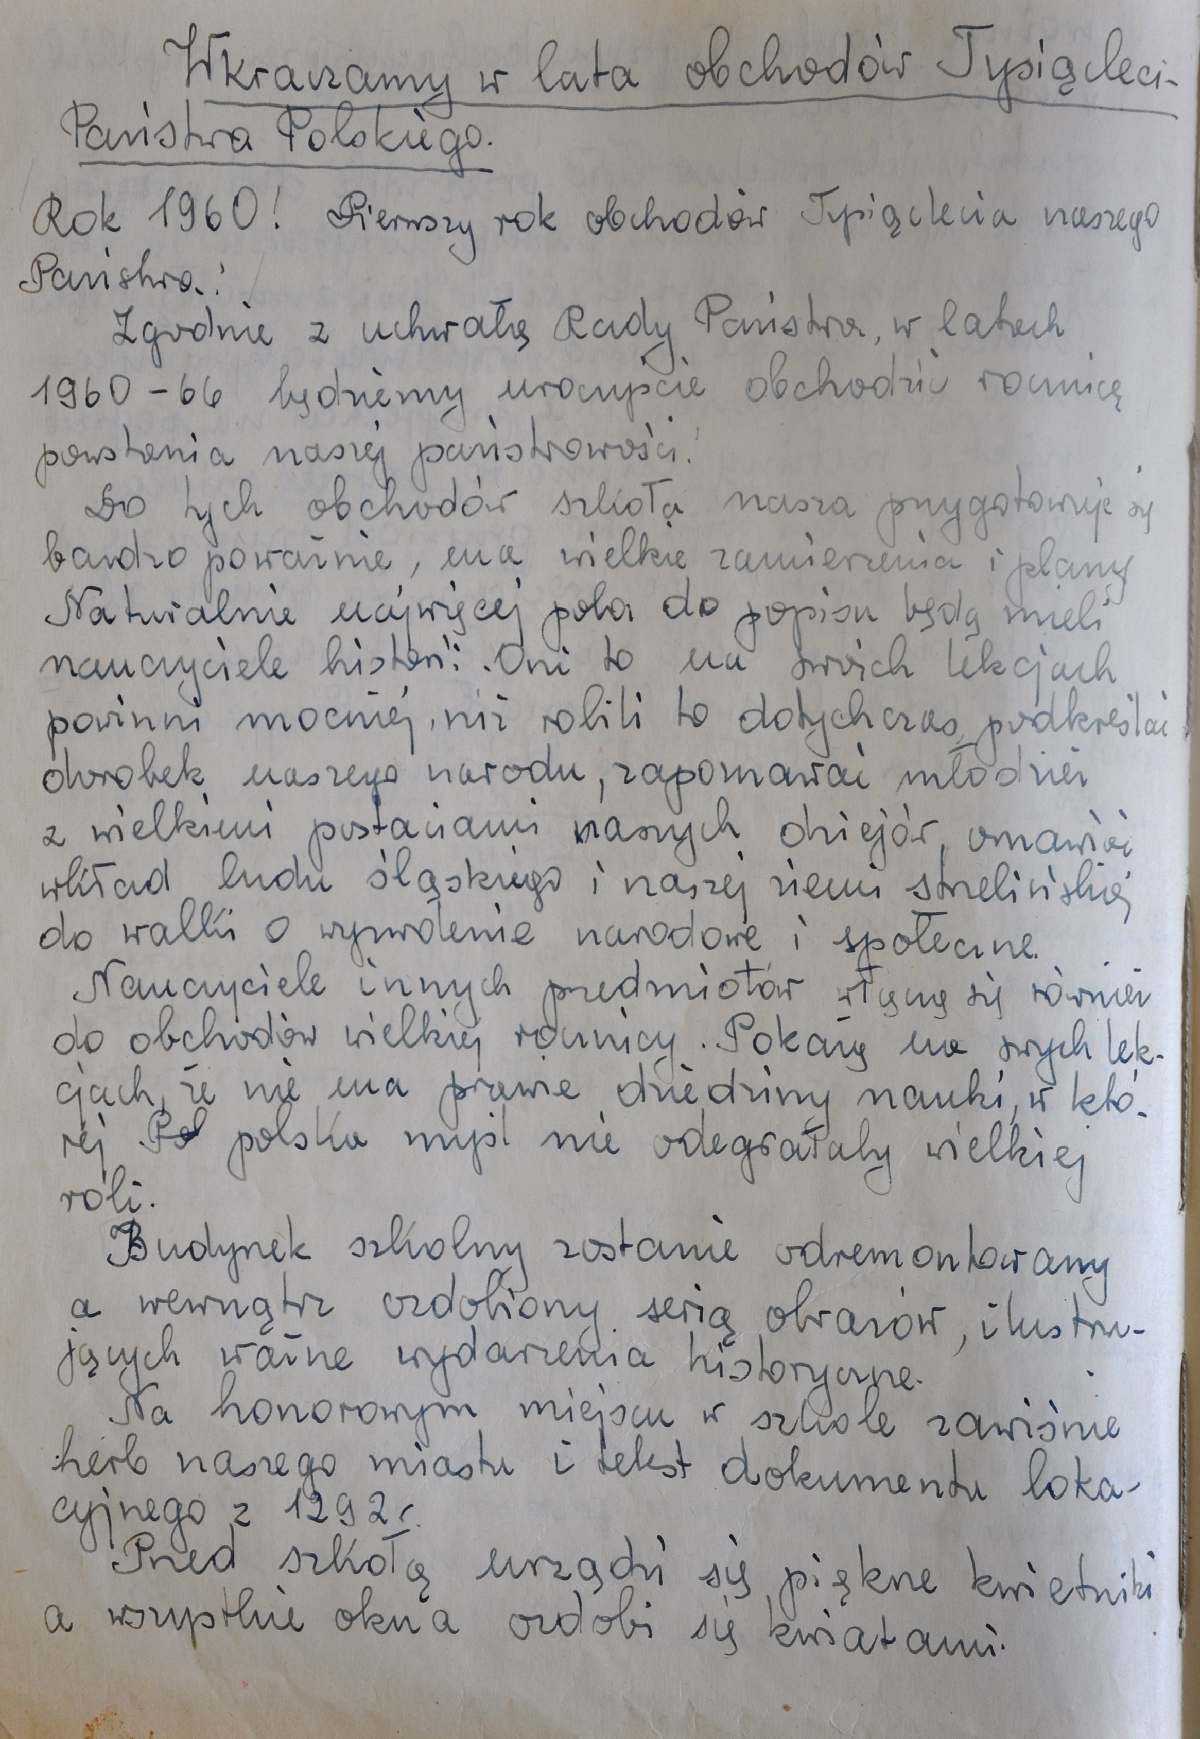 Wkraczamy w lata obchodów Tysiącleci-
Państwa Polskiego.
Rok 1960! Pierwszy rok obchodów Tysiąclecia naszego
Państwa!
Zgodnie z uchwałą Rady Państwa, w latach
1960-66 będziemy uroczyście obchodzić rocznicę
powstania naszej państwowości!
Do tych obchodów szkoła nasza przygotowuje się
bardzo poważnie, ma wielkie zamierzenia i plany
Naturalnie najwięcej pola do popisu będą mieli
nauczyciele historii. Oni to na swoich lekcjach
powinni mocniej, niż robili to dotychczas, podkreślać
dorobek naszego narodu, zapoznawać młodzież
z wielkimi postaciami naszych dziejów, omawiać
wkład ludu śląskiego i naszej ziemi strzelińskiej
do walki o wyzwolenie narodowe i społeczne.
Nauczyciele innych przedmiotów włączą się również
do obchodów wielkiej rocznicy. Pokażą na swych lek-
cjach, że nie ma prawie dziedziny nauki, w któ-
rej Pol polska myśl nie odegrałaby wielkiej
roli.
Budynek szkolny zostanie odremontowany
a wewnątrz ozdobiony serią obrazów, ilustru-
jących ważne wydarzenia historyczne.
Na honorowym miejscu w szkole zawiśnie
herb naszego miasta i tekst dokumentu loka-
cyjnego z 1292r.
Przed szkołą urządzi się piękne kwietniki
a wszystkie okna ozdobi się kwiatami.